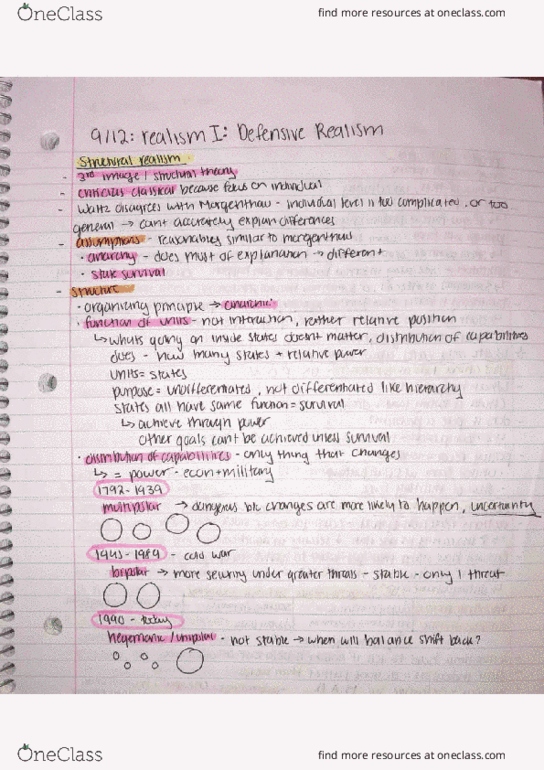 OneClass
find more resources at oneclass.com
9/12: realism I: Defensive Realism
Structural realism
- 3rd image / structural theory
- criticizes classical because focus on individual
- Waltz disagrees with Morgenthau - individual level is too complicated, or too
general → can't accurately explain differences
- assumptions - similar to morgenthau
· anarchy - does most of explanation → different
· state survival
- Structure
· organizing principle → anarchic
· function of units - not interaction, rather relative position
↳ whats going on inside states doesnt matter, distribution of capabilities
does - how many states + relative power
units = states
purpose = undifferentiated, not differentiated like hierarchy
states all have same function = survival
↳ achieve through power
other goals cant be achieved unless survival
· distribution of capabilities - only thing that changes
↳ = power - econ + military
1792 - 1939
multipolar → dangerous b/c changes are more likely to happen, uncertainty
1945 - 1989 - cold war
bipolar → more security under greater threats - stable - only 1 threat
1990 - today
hegemonic / unipolar - not stable → when will balance shift back?
OneClass
find more resources at oneclass.com